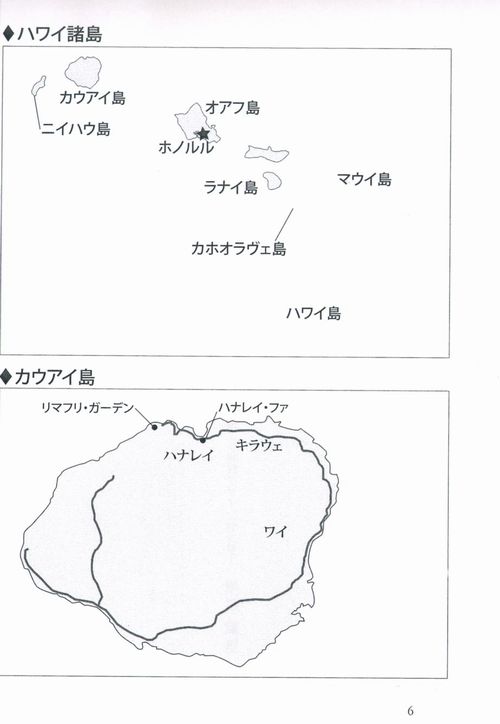 ◆ハワイ諸島
カウアイ島
ニイハウ島
オアフ島
ホノルル
ラナイ島
マウイ島
カホオラヴェ島
ハワイ島
◆カウアイ島
リマフリ・ガーデン
ハナレイ・ファ
ハナレイ
キラウェ
ワイ
6